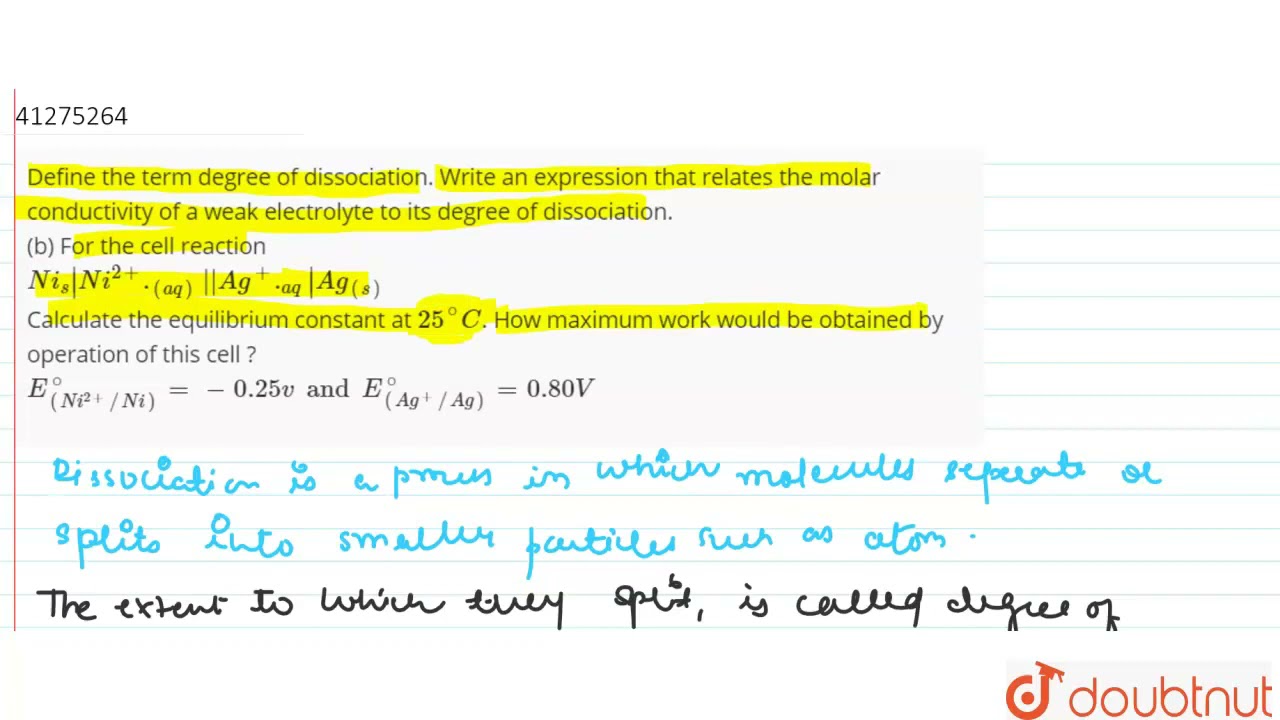 41275264
Define the term degree of dissociation. Write an expression that relates the molar
conductivity of a weak electrolyte to its degree of dissociation.
(b) For the cell reaction
Ni_s|Ni^{2+}._{(aq)} ||Ag^+._{aq} |Ag_{(s)}
Calculate the equilibrium constant at 25°C. How maximum work would be obtained by
operation of this cell ?
E°_{(Ni^{2+}/Ni)} = −0.25v and E°_{(Ag^+/Ag)} = 0.80V
Dissociation is a process in which molecules seperate or
splits into smaller particles such as atom.
The extent to which they split, is called degree of
doubtnut